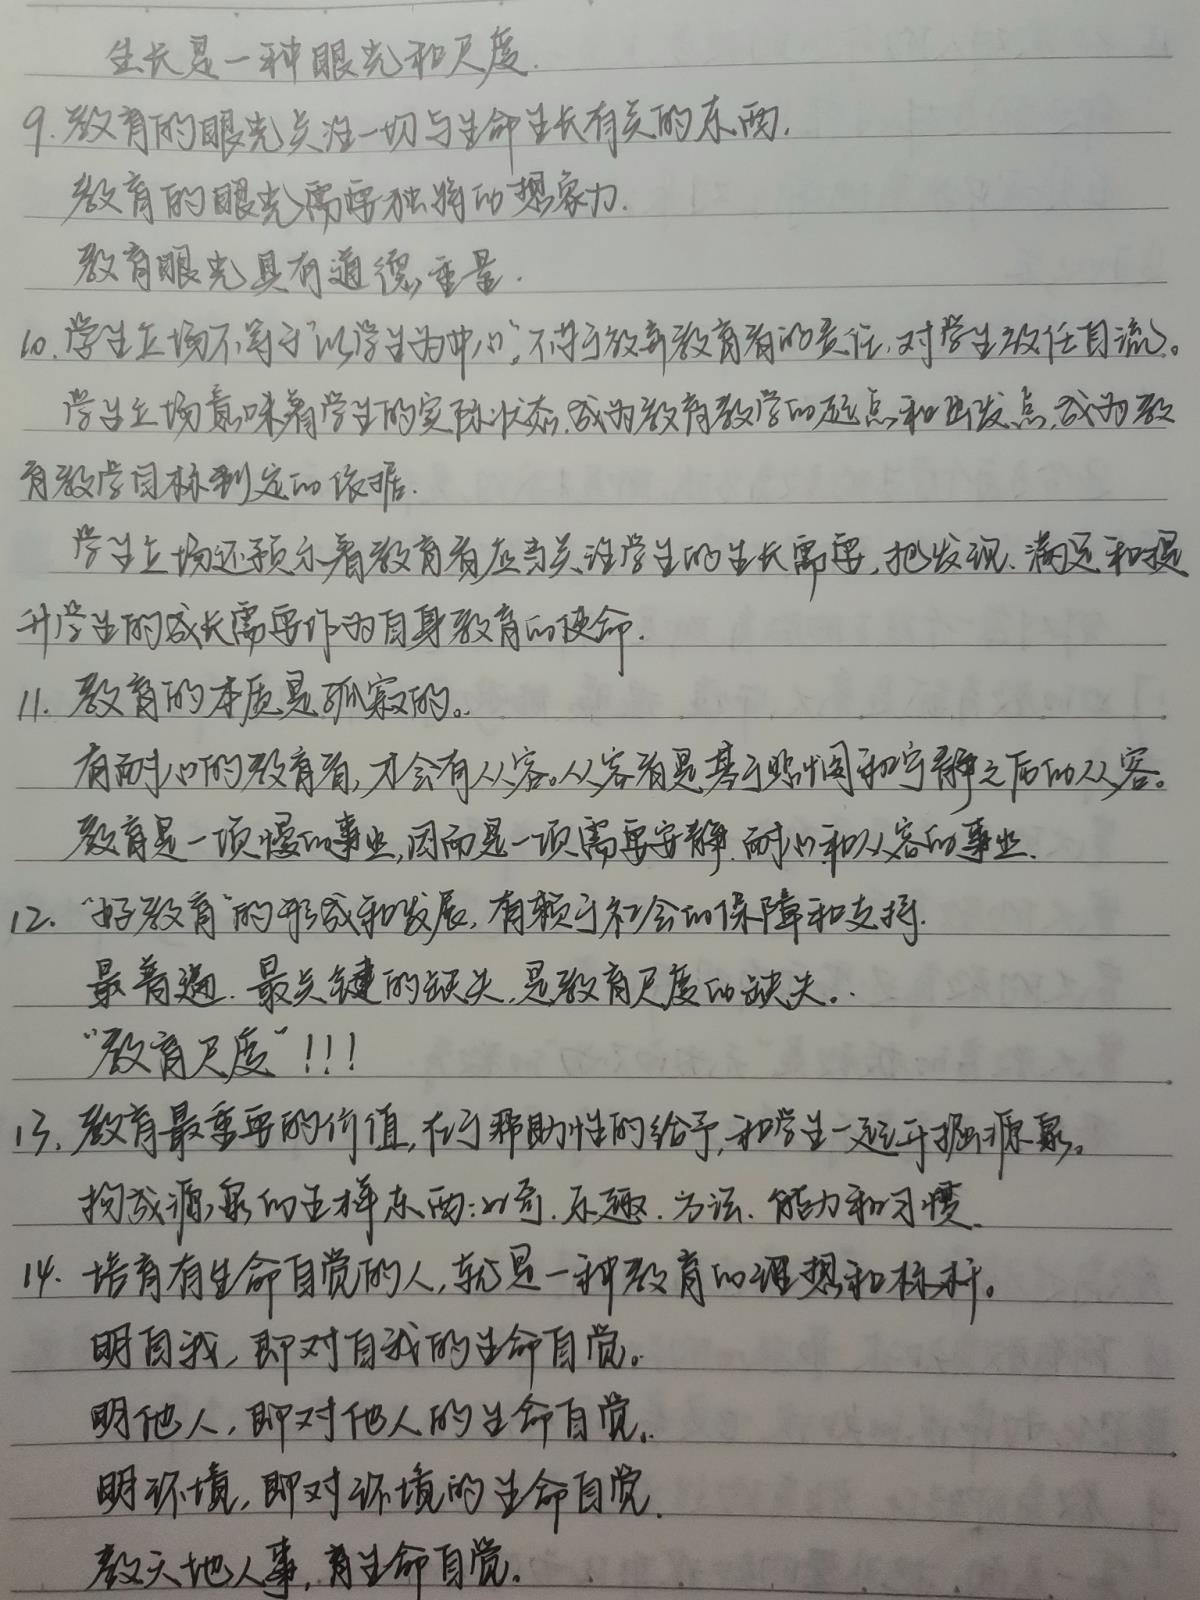 生长是一种眼光和尺度.
9. 教育的眼光关注一切与生命生长有关的东西.
教育的眼光需要独特的想象力.
教育眼光具有道德重量.
10. 学生立场不等于“以学生为中心”。不等于放弃教育者的责任,对学生放任自流。
学生立场意味着学生的实际状态,成为教育教学的起点和出发点,成为教
育教学目标制定的依据.
学生立场还预示着教育者应当关注学生的生长需要,把发现、满足和提
升学生的成长需要作为自身教育的使命.
11. 教育的本质是孤寂的。
有耐心的教育者,才会有从容。从容者是基于 和宁静之后的从容。
教育是一项慢的事业,因而是一项需要安静、耐心和从容的事业.
12. “好教育”的形成和发展,有赖于社会的保障和支持.
最普遍、最关键的缺失,是教育尺度的缺失。
“教育尺度”!!!
13. 教育最重要的价值,在于帮助性的给予,和学生一起开掘源泉。
构成源泉的五样东西:好奇、乐趣、方法、能力和习惯.
14. 培育有生命自觉的人,就是一种教育的理想和标杆。
明自我,即对自我的生命自觉。
明他人,即对他人的生命自觉。
明环境,即对环境的生命自觉.
教天地人事,育生命自觉。